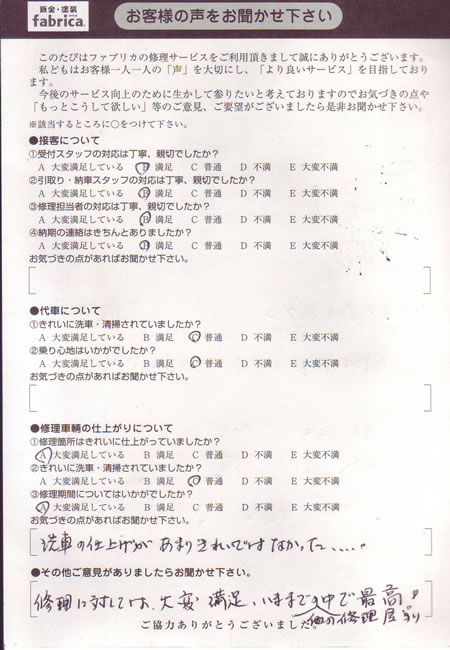 鈑金・塗装
fabrica.
お客様の声をお聞かせ下さい
このたびはファブリカの修理サービスをご利用頂きまして誠にありがとうございます。
私どもはお客様一人一人の「声」を大切にし、「より良いサービス」を目指しており
ます。
今後のサービス向上のために生かして参りたいと考えておりますのでお気づきの点や
「もっとこうして欲しい」等のご意見、ご要望がございましたら是非お聞かせ下さい。
※該当するところに○をつけて下さい。
●接客について
①受付スタッフの対応は丁寧、親切でしたか?
A 大変満足している B 満足 C 普通 D 不満 E 大変不満
②引取り・納車スタッフの対応は丁寧、親切でしたか?
A 大変満足している B 満足 C 普通 D 不満 E 大変不満
③修理担当者の対応は丁寧、親切でしたか?
A 大変満足している B 満足 C 普通 D 不満 E 大変不満
④納期の連絡はきちんとありましたか?
A 大変満足している B 満足 C 普通 D 不満 E 大変不満
お気づきの点があればお聞かせ下さい。
●代車について
①きれいに洗車・清掃されていましたか?
A 大変満足している B 満足 C 普通 D 不満 E 大変不満
②乗り心地はいかがでしたか?
A 大変満足している B 満足 C 普通 D 不満 E 大変不満
お気づきの点があればお聞かせ下さい。
●修理車輌の仕上がりについて
①修理箇所はきれいに仕上がっていましたか?
A 大変満足している B 満足 C 普通 D 不満 E 大変不満
②きれいに洗車・清掃されていましたか?
A 大変満足している B 満足 C 普通 D 不満 E 大変不満
③修理期間についてはいかがでしたか?
A 大変満足している B 満足 C 普通 D 不満 E 大変不満
お気づきの点があればお聞かせ下さい。
洗車の仕上げがあまりきれいではなかった.....
●その他ご意見がありましたらお聞かせ下さい。
修理に対しては、大変満足、いままでの中で最高。
他の修理屋より
ご協力ありがとうございました。